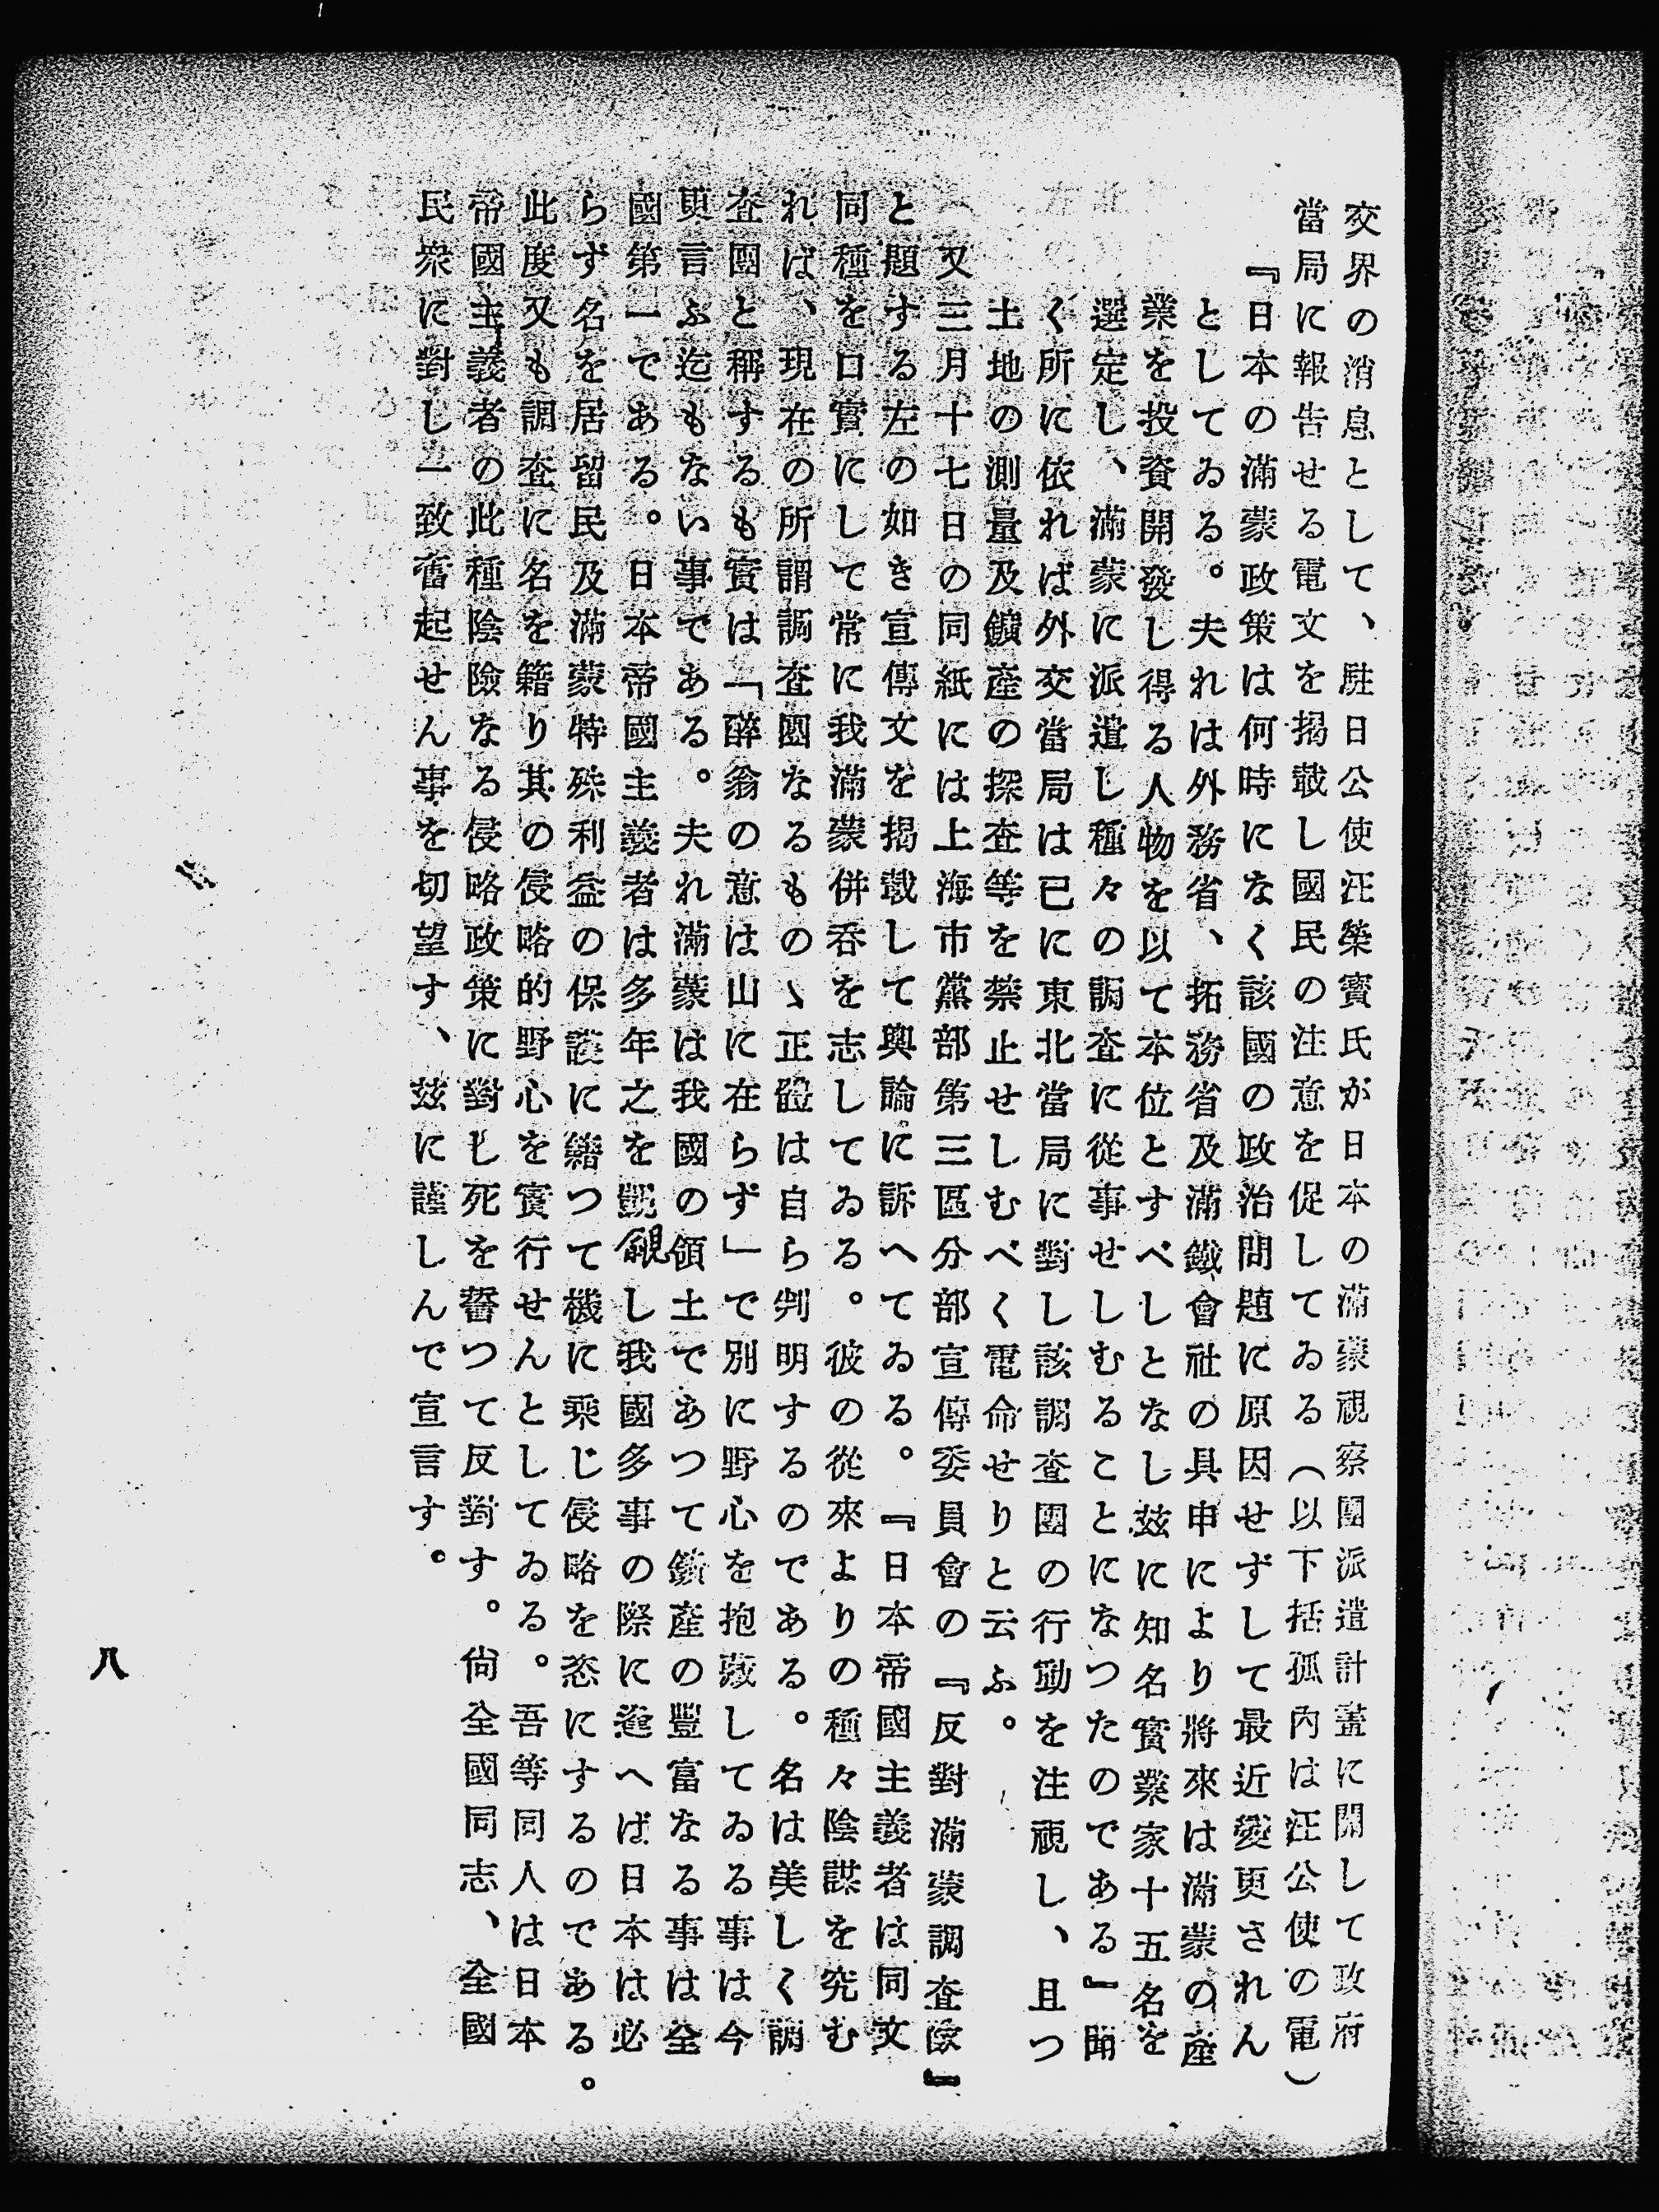 交界の消息として、駐日公使汪榮寶氏が日本の滿蒙視察團派遣計畫に關して政府
當局に報告せる電文を揭載し國民の注意を促してゐる（以下括孤內は汪公使の電）
『日本の滿蒙政策は何時になく該國の政治問題に原因せずして最近變更されん
としてゐる。夫れは外務省、拓務省及滿鐵會社の具申により將來は滿蒙の產
業を投資開發し得る人物を以て本位とすべしとなし玆に知名實業家十五名を
選定し、滿蒙に派遣し種々の調査に從事せしむることになつたのである』聞
く所に依れば外交當局は已に東北當局に對し該調査團の行動を注視し、且つ
土地の測量及鑛產の探査等を禁止せしむべく電命せりと云ふ。
又三月十七日の同紙には上海市黨部第三區分部宣傳委員會の『反對滿蒙調査隊』
と題する左の如き宣傳文を揭載して輿論に訴へてゐる。『日本帝國主義者は同文
同種を口實にして常に我滿蒙併呑を志してゐる。彼の從來よりの種々陰謀を究む
れば、現在の所謂調査團なるものゝ正體は自ら判明するのである。名は美しく調
査團と稱するも實は「醉翁の意は山に在らず」で別に野心を抱藏してゐる事は今
更言ふ迄もない事である。夫れ滿蒙は我國の領土であつて鑛產の豐富なる事は全
國第一である。日本帝國主義者は多年之を覬覦し我國多事の際に逢へば日本は必
らず名を居留民及滿蒙特殊利益の保護に籍つて機に乘じ侵略を恣にするのである。
此度又も調査に名を籍り其の侵略的野心を實行せんとしてゐる。吾等同人は日本
帝國主義者の此種陰險なる侵略政策に對し死を誓つて反對す。尙全國同志、全國
民衆に對し一致奮起せん事を切望す、玆に謹しんで宣言す。
八